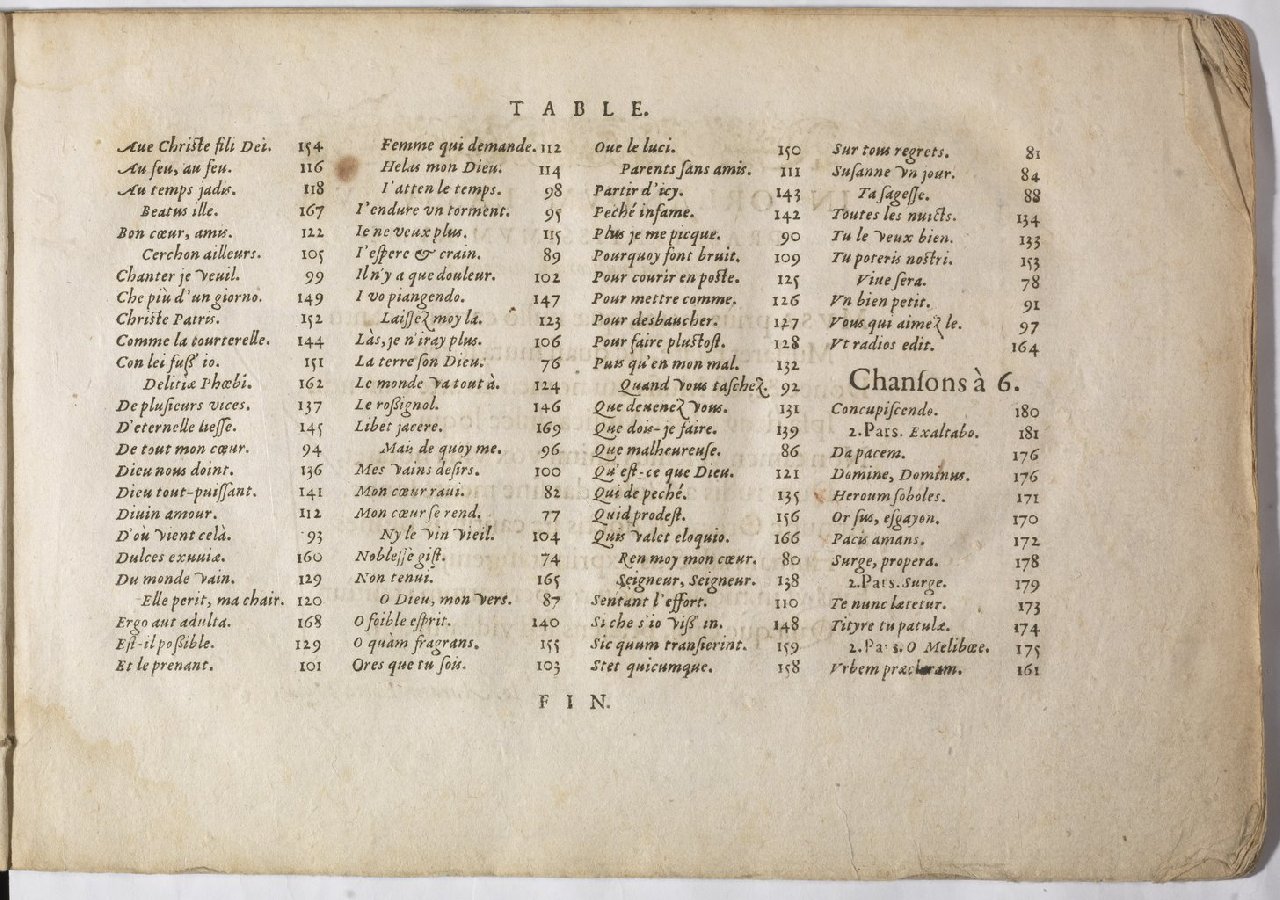 TABLE.
Aue Christe fili Dei. 154
Au feu, au feu. 116
Au temps jadis. 118
Beatus ille. 167
Bon cœur, amis. 122
Cerchon ailleurs. 105
Chanter je veuil. 99
Che più d'un giorno. 149
Christe Patris. 152
Comme la tourterelle. 144
Con lei fuss' io. 151
Delitiæ Phœbi. 162
De plusieurs vices. 137
D'eternelle liesse. 145
De tout mon cœur. 94
Dieu nous doint. 136
Dieu tout-puissant. 141
Diuin amour. 112
D'où vient celà. 93
Dulces exuuiæ. 160
Du monde vain. 129
Elle perit, ma chair. 120
Ergo aut adulta. 168
Est-il possible. 129
Et le prenant. 101
Femme qui demande. 112
Helas mon Dieu. 114
I'atten le temps. 98
I'endure vn torment. 95
Ie ne veux plus. 115
I'espere & crain. 89
Il n'y a que douleur. 102
I vo piangendo. 147
Laissez moy là. 123
Las, je n'iray plus. 106
La terre son Dieu. 76
Le monde va tout à. 124
Le rossignol. 146
Libet jacere. 169
Mais de quoy me. 96
Mes vains desirs. 100
Mon cœur raui. 82
Mon cœur se rend. 77
Ny le vin vieil. 104
Noblesse gist. 74
Non tenui. 165
O Dieu, mon vers. 87
O foible esprit. 140
O quàm fragrans. 155
Ores que tu sois. 103
Oue le luci. 150
Parents sans amis. 111
Partir d'icy. 143
Peché infame. 142
Plus je me picque. 90
Pourquoy font bruit. 109
Pour courir en poste. 125
Pour mettre comme. 126
Pour desbaucher. 127
Pour faire plustost. 128
Puis qu'en mon mal. 132
Quand vous taschez. 92
Que deuenez vous. 131
Que dois-je faire. 139
Que malheureuse. 86
Qu'est-ce que Dieu. 121
Qui de peché. 135
Quid prodest. 156
Quis valet eloquio. 166
Ren moy mon cœur. 80
Seigneur, Seigneur. 138
Sentant l'effort. 110
Si che s'io viss' in. 148
Sic quum transierint. 159
Stet quicumque. 158
Sur tous regrets. 81
Susanne vn jour. 84
Ta sagesse. 88
Toutes les nuicts. 134
Tu le veux bien. 133
Tu poteris nostri. 153
Viue sera. 78
Vn bien petit. 91
Vous qui aimez le. 97
Vt radios edit. 164
Chansons à 6.
Concupiscendo. 180
2. Pars. Exaltabo. 181
Da pacem. 176
Domine, Dominus. 176
Heroum soboles. 171
Or sus, esgayon. 170
Pacis amans. 172
Surge, propera. 178
2. Pars. Surge. 179
Te nunc lætetur. 173
Tityre tu patulæ. 174
2. Pars. O Melibœe. 175
Vrbem præclaram. 161
FIN.